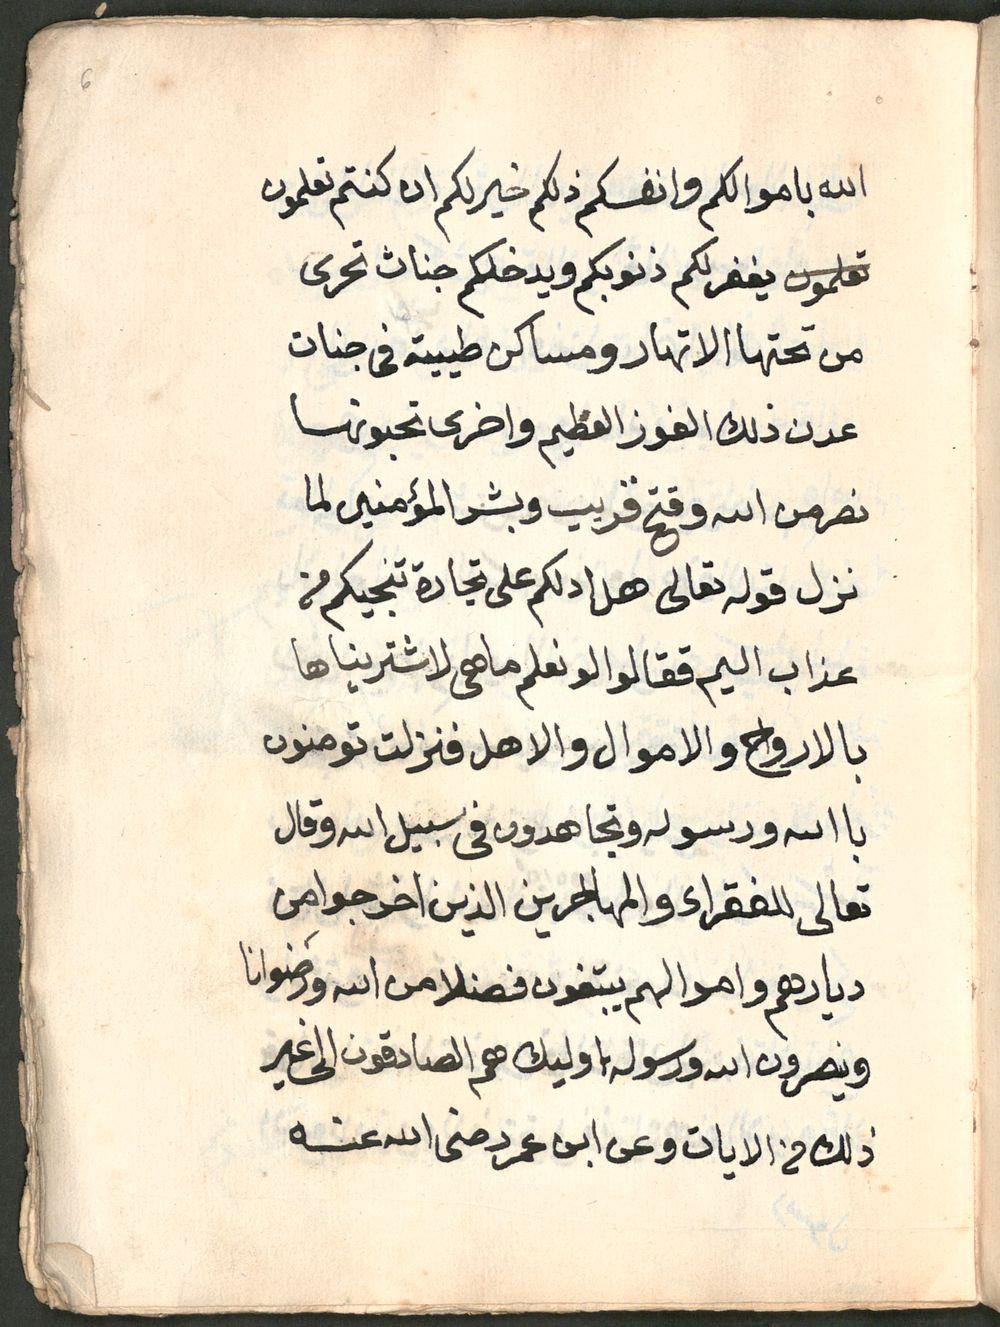 6
الله باموالكم وانفسكم ذلكم خير لكم ان كنتم تعلمون
تعلمون يغفر لكم ذنوبكم ويدخلكم جنات تجرى
من تحتها الانهار ومساكن طيبية فى جنات
عدن ذلك الفوز العظيم واخرى تحبونها
نصر من الله وفتح قريب وبشر المؤمنين لما
نزل قوله تعالى هل ادلكم على تجارة تنجيكم من
عذاب اليم فقالوا لو نعلم ما هى لاشتريناها
بالارواح والاموال والاهل فنزلت تومنون
باالله ورسوله وتجاهدون فى سبيل الله وقال
تعالى للفقراء والمهاجرين الذين اخرجوا من
ديارهم واموالهم يبتغون فضلا من الله ورضوانا
وينصرون الله ورسوله اوليك هم الصادقون الى غير
ذلك من الايات وعن ابن عمر رضى الله عنه